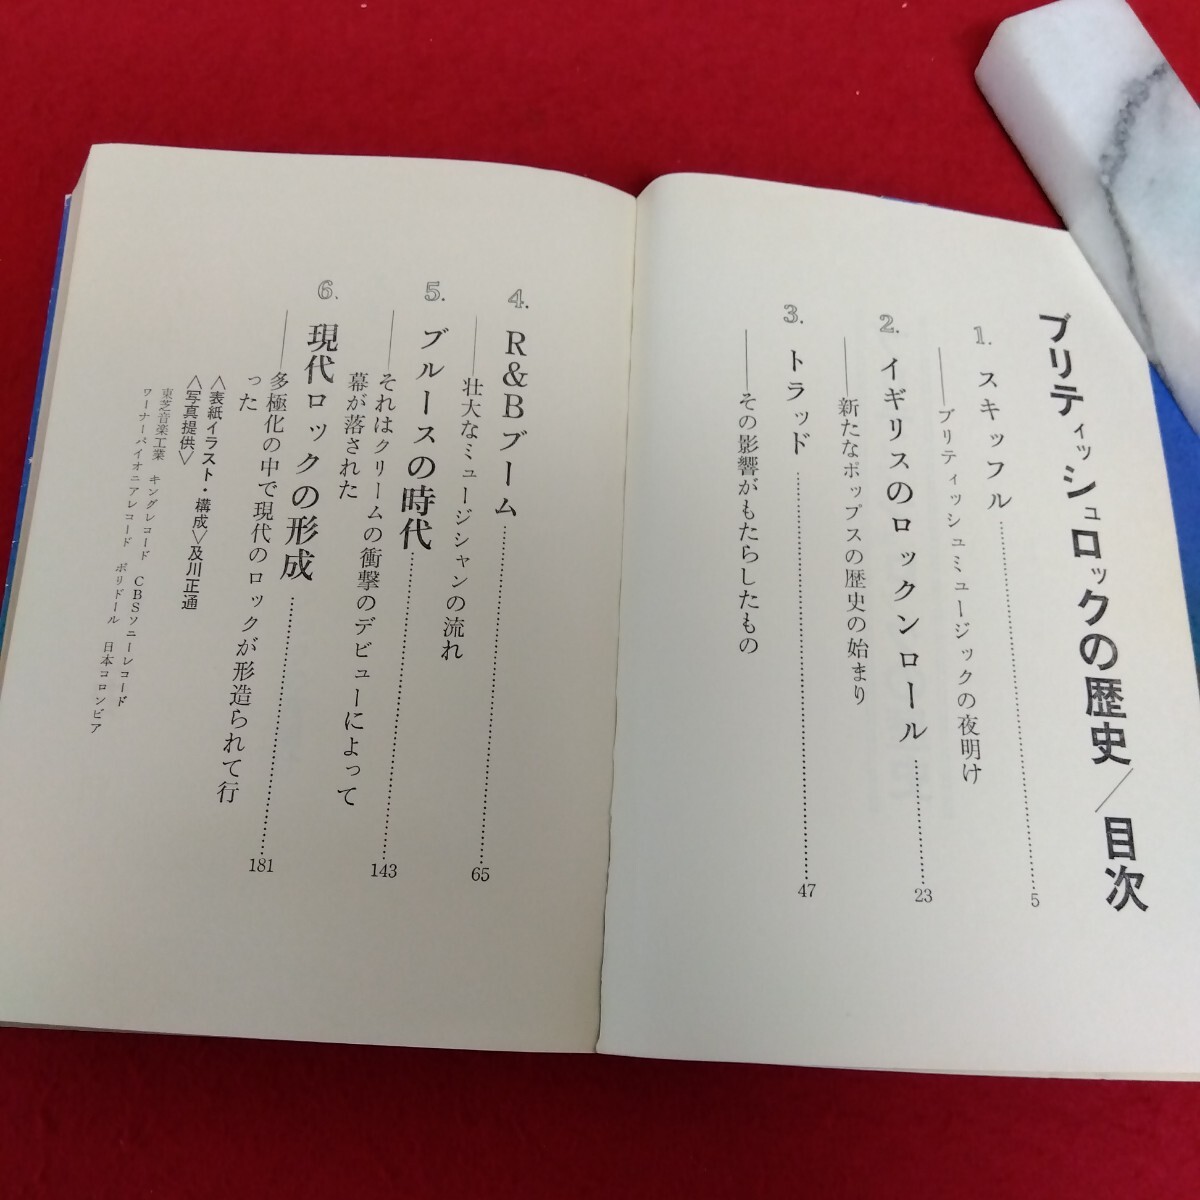 ブリティッシュロックの歴史／目次
1. スキッフル……5
――ブリティッシュミュージックの夜明け
2. イギリスのロックンロール……23
――新たなポップスの歴史の始まり
3. トラッド……47
――その影響がもたらしたもの
4. R&Bブーム……65
――壮大なミュージシャンの流れ
5. ブルースの時代……143
――それはクリームの衝撃のデビューによって
幕が落された
6. 現代ロックの形成……181
――多極化の中で現代のロックが形造られて行
った
〈表紙イラスト・構成〉及川正通
〈写真提供〉
東芝音楽工業 キングレコード CBSソニーレコード
ワーナーパイオニアレコード ポリドール 日本コロンビア